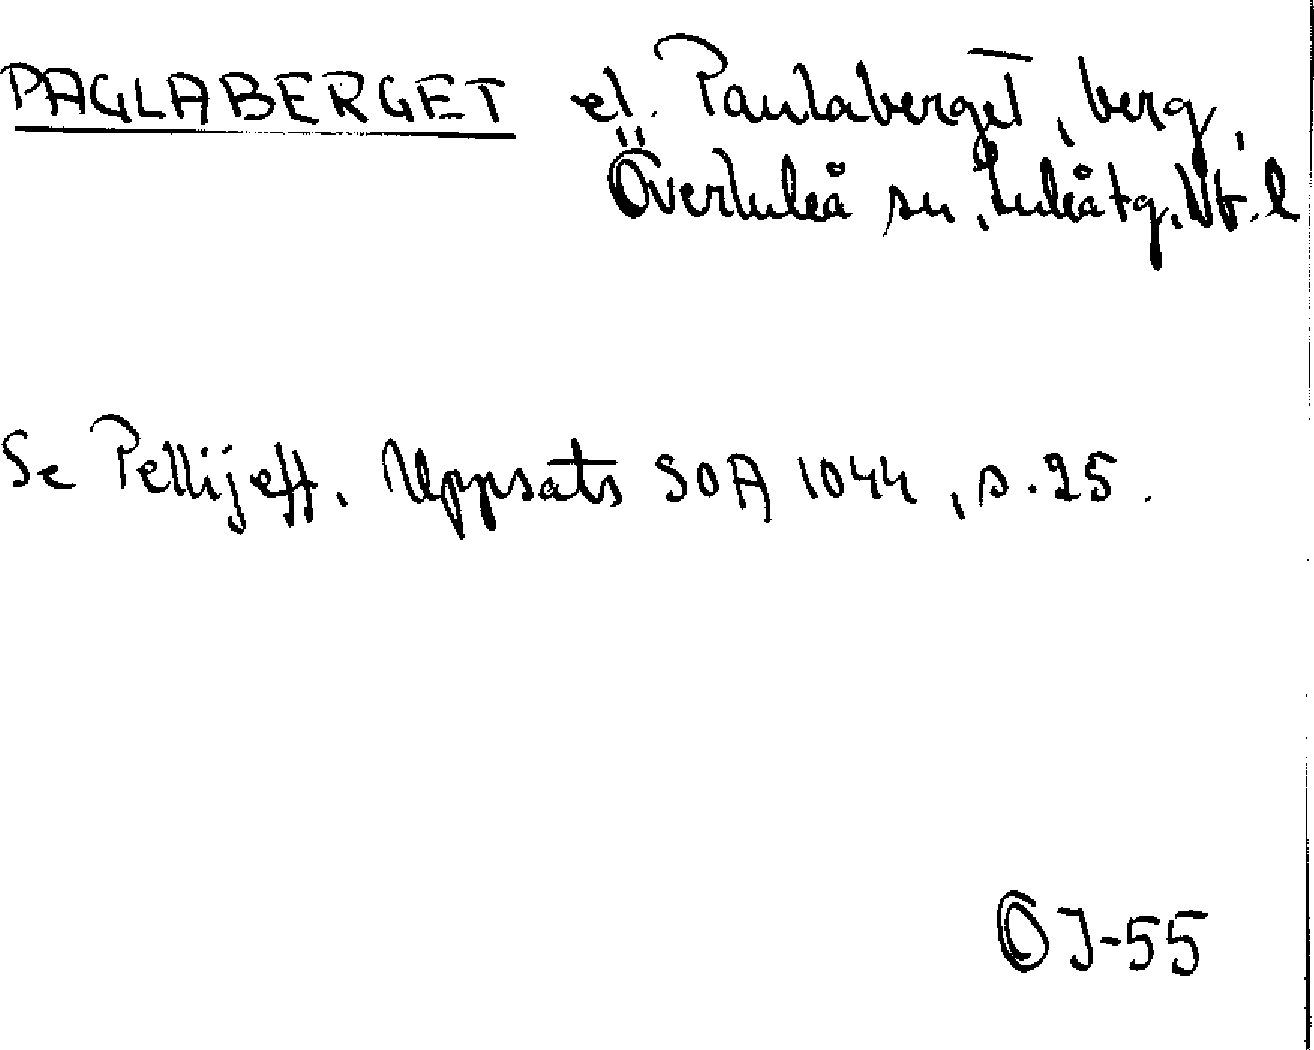 PAGLABERGET el. Paulaberget, berg,
Överluleå sn, Luleå tg. Vb. l
Se Pellijeff. Uppsats SOA 1044, s. 25.
OJ-55